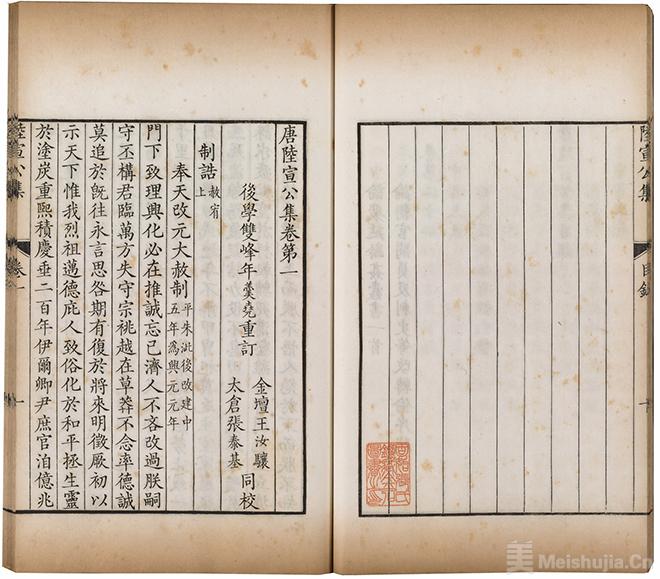 陸宣公集
目録
唐陸宣公集卷第一
後學雙峰年羹堯重訂
金壇王汝驤
太倉張泰基
同校
制誥 赦宥上
奉天改元大赦制 平朱泚後改建中五年爲興元元年
門下致理興化必在推誠忘己濟人不吝改過朕嗣
守丕構君臨萬方失守宗祧越在草莽不念率德誠
莫追於旣往永言思咎期有復於將來明徵厥初以
示天下惟我烈祖邁德庇人致俗化於和平拯生靈
於塗炭重熙積慶垂二百年伊爾卿尹庶官洎億兆
陸宣公集
卷一
一
美 Meishujia.Cn